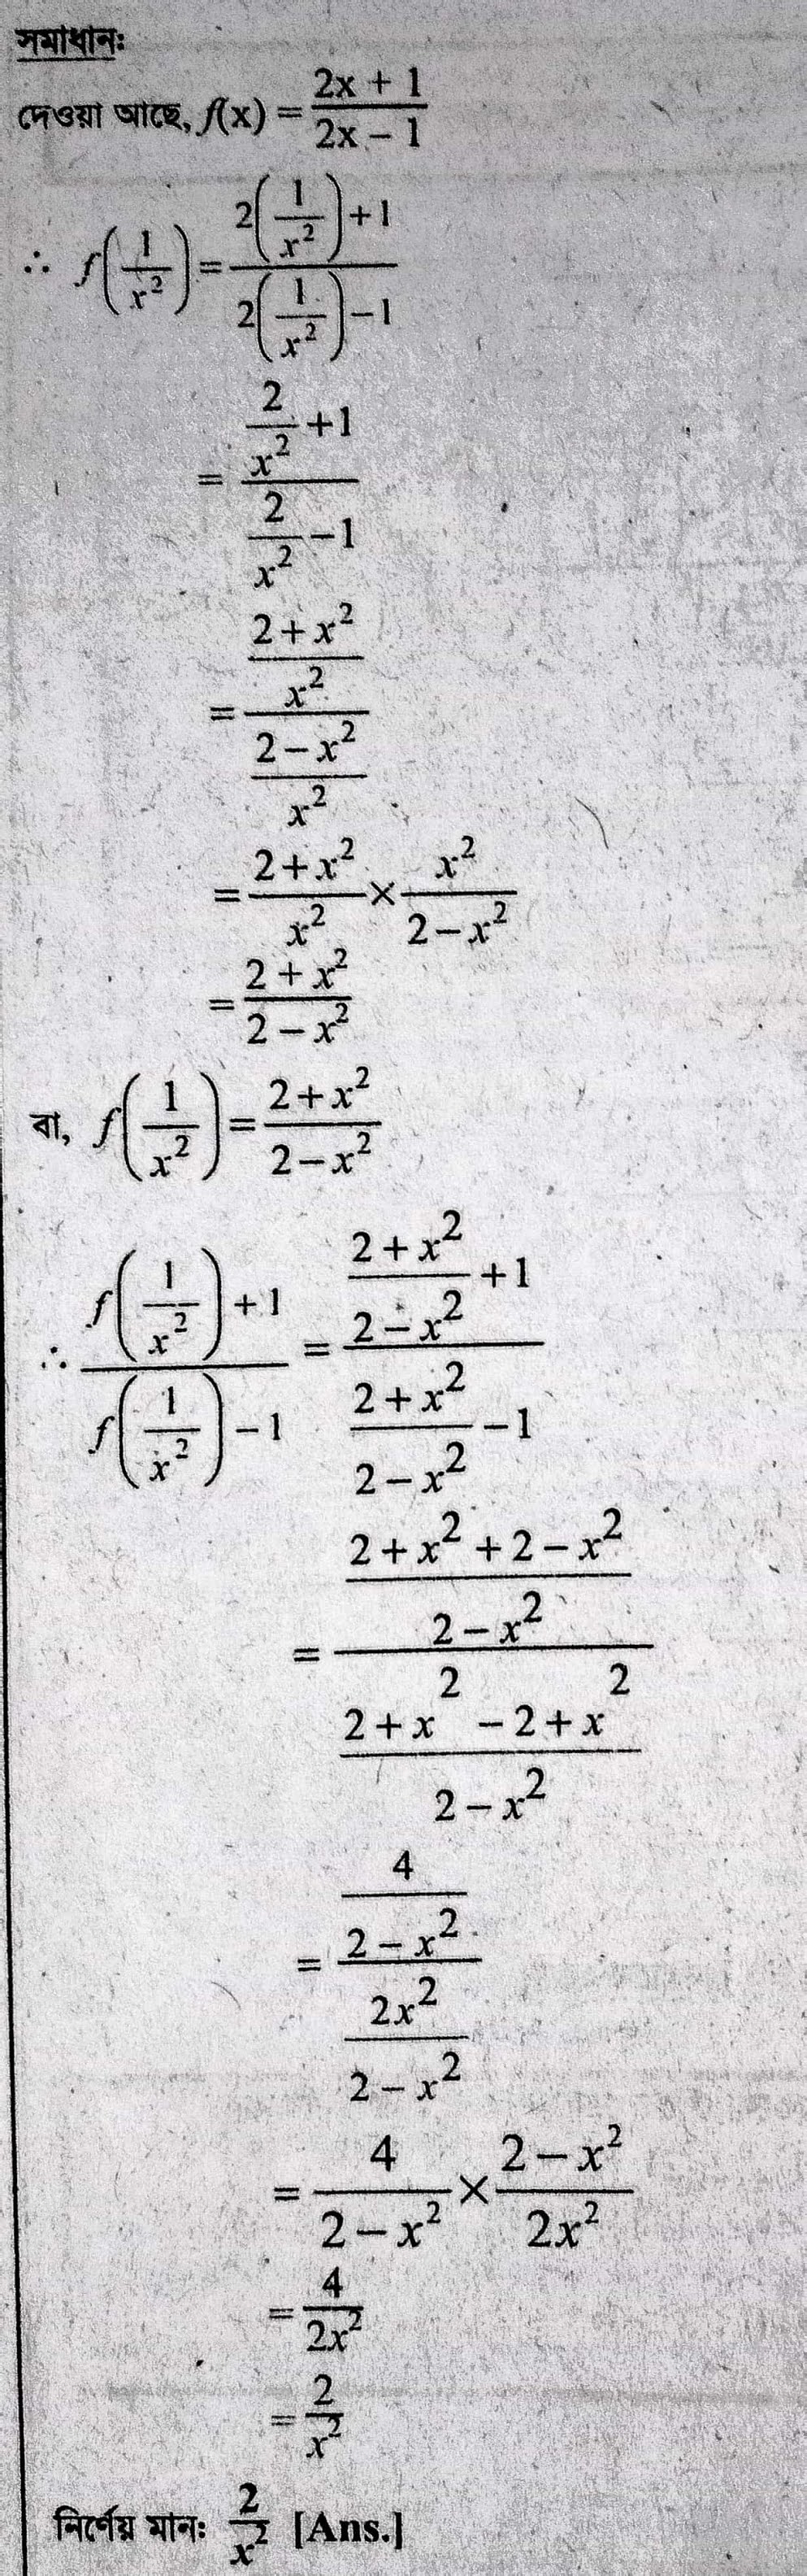 সমাধানঃ
দেওয়া আছে, f(x) = (2x + 1)/(2x - 1)
∴ f(1/x²) = (2(1/x²)+1)/(2(1/x²)-1)
= (2/x² + 1)/(2/x² - 1)
= ((2+x²)/x²)/((2-x²)/x²)
= (2+x²)/x² × x²/(2-x²)
= (2+x²)/(2-x²)
বা, f(1/x²) = (2+x²)/(2-x²)
∴ (f(1/x²)+1)/(f(1/x²)-1) = ((2+x²)/(2-x²)+1)/((2+x²)/(2-x²)-1)
= ((2+x²+2-x²)/(2-x²))/((2+x²-2+x²)/(2-x²))
= (4/(2-x²))/(2x²/(2-x²))
= 4/(2-x²) × (2-x²)/2x²
= 4/2x²
= 2/x²
নির্ণেয় মানঃ 2/x² [Ans.]